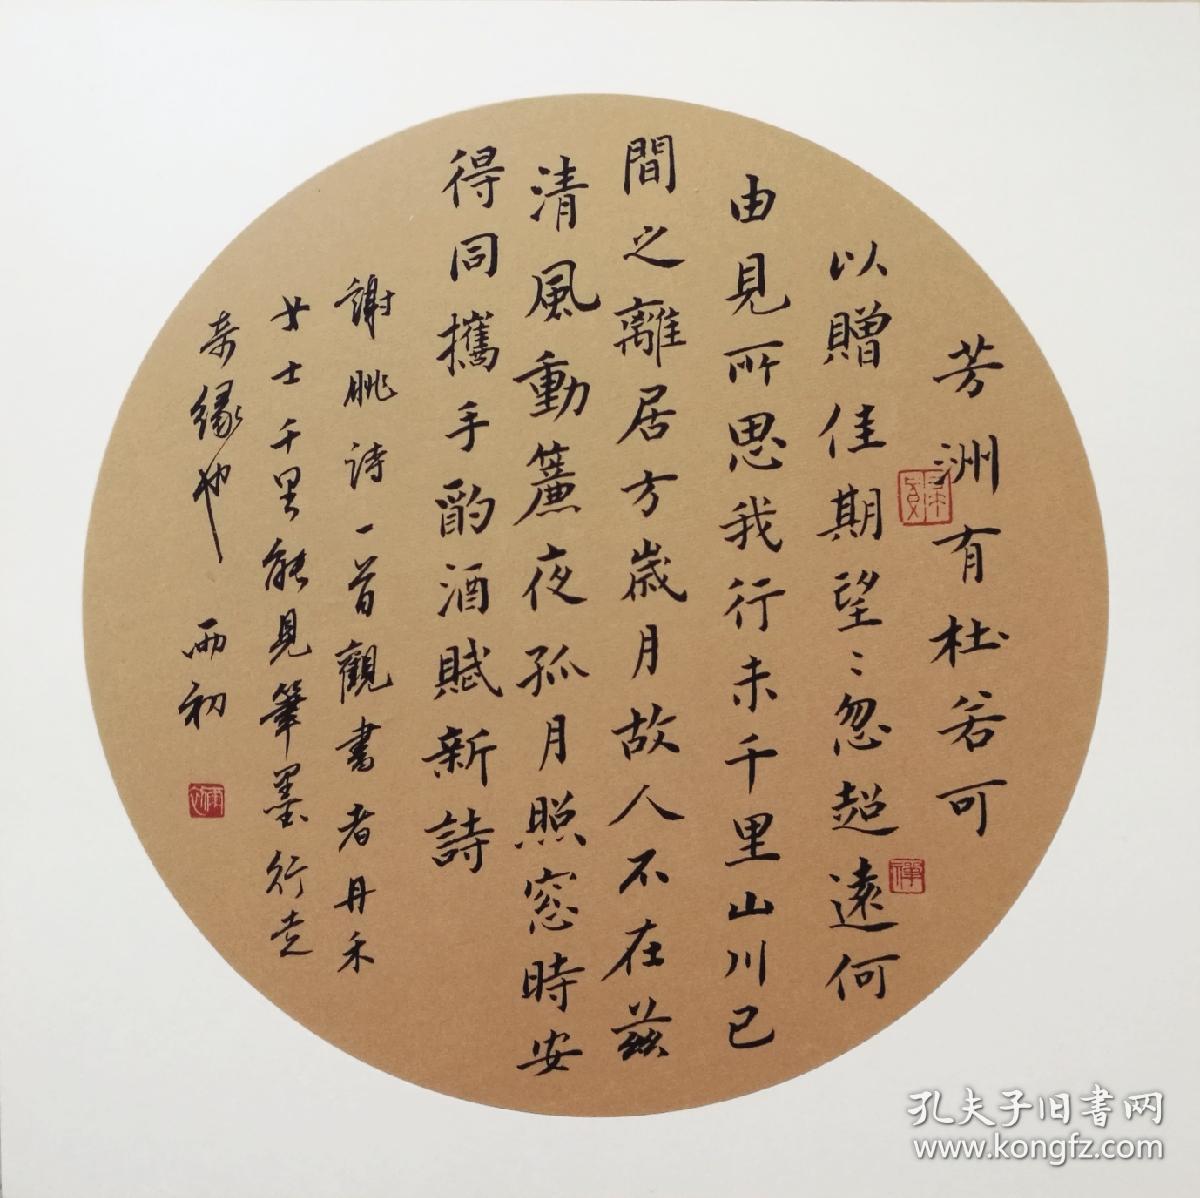 芳洲有杜若可
以贈佳期望〻忽超遠何
由見所思我行未千里山川已
間之離居方歲月故人不在茲
清風動簾夜孤月照窓時安
得同攜手酌酒賦新詩
謝朓詩一首觀書者丹禾
女士千里能見筆墨行走
奇緣也 雨初
孔夫子旧書网
www.kongfz.com